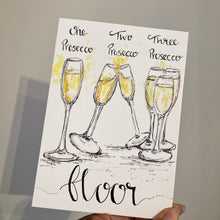 One Two Three
Prosecco Prosecco Prosecco
floor